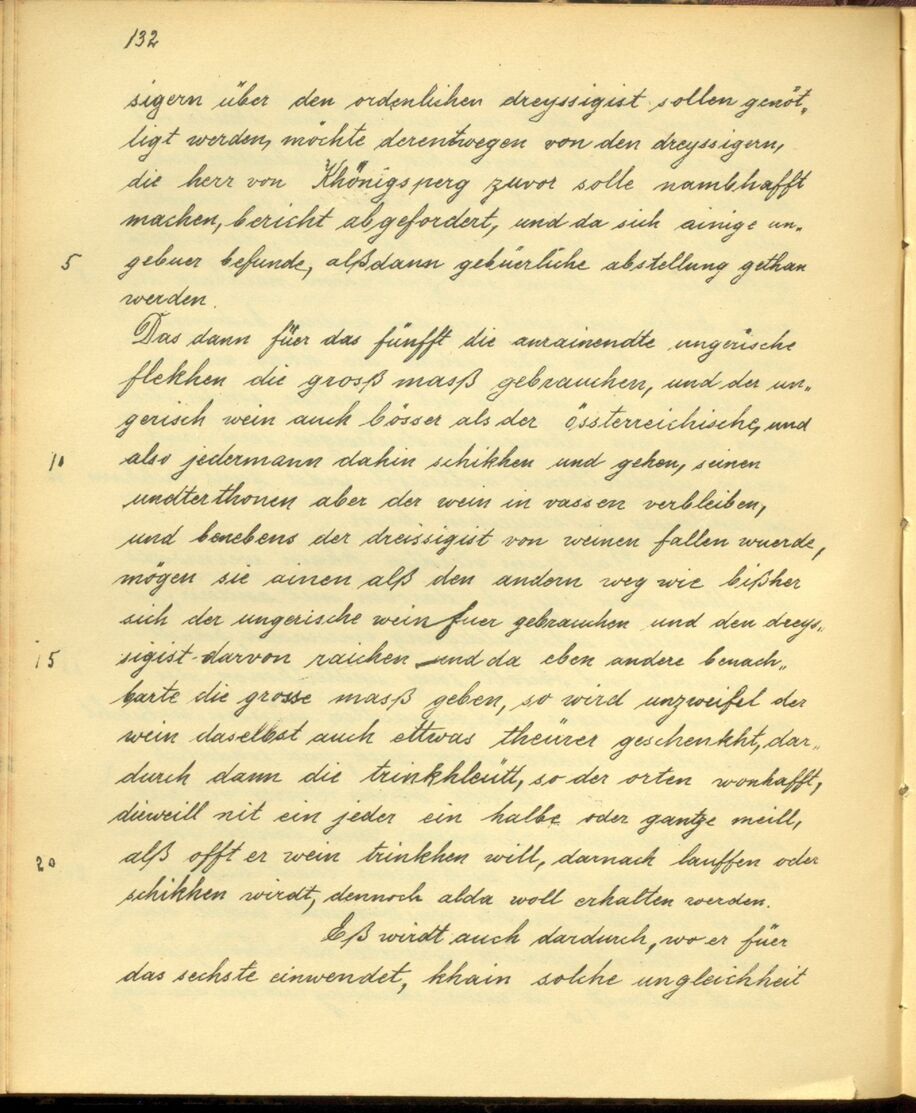 132
sigern über den ordenlichen dreyssigist sollen genöt„
tigt werden, möchte derentwegen von den dreyssigern,
die herr von Khönigsperg zuvor solle nambhafft
machen, bericht abgefordert, und da sich ainige un„
5 gebuer befunde, alßdann gebüerliche abstellung gethan
werden.
Das dann füer das fünfft die anrainendte ungerische
flekhen die groß maß gebrauchen, und der un„
gerisch wein auch bösser als der össterreichische, und
10 also jedermann dahin schikhen und gehen, seinen
undterthonen aber der wein in vassen verbleiben,
und benebens der dreissigist von weinen fallen wuerde,
mögen sie ainen alß den andern weg wie bißher
sich der ungerische wein fuer gebrauchen und den dreys„
15 sigist darvon raichen und da eben andere benach„
barte die grosse maß geben, so wird unzweifel der
wein daselbst auch ettwas theürer geschenkht, dar„
durch dann die trinkhleütt, so der orten wonhafft,
dieweill nit ein jeder ein halbe oder gantze meill,
20 alß offt er wein trinkhen will, darnach lauffen oder
schikhen wirdt, dennoch alda woll erhalten werden.
Eß wirdt auch dardurch, wo er füer
das sechste einwendet, khain solche ungleichheit